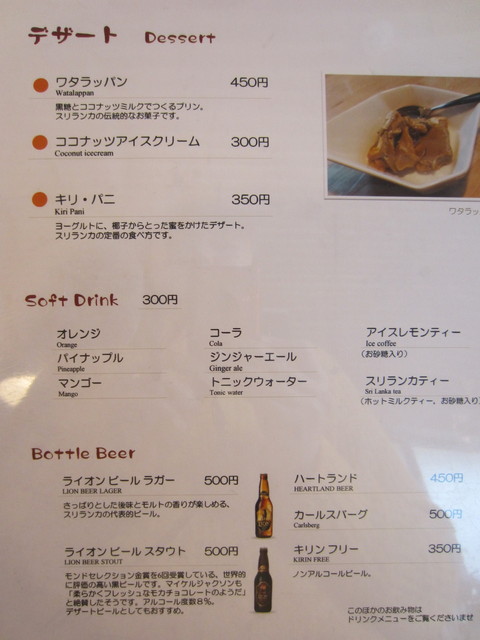 デザート Dessert
ワタラッパン 450円
Watalappan
黒糖とココナッツミルクでつくるプリン。
スリランカの伝統的なお菓子です。
ココナッツアイスクリーム 300円
Coconut icecream
キリ・パニ 350円
Kiri Pani
ヨーグルトに、椰子からとった蜜をかけたデザート。
スリランカの定番の食べ方です。
ワタラッ
Soft Drink 300円
オレンジ
Orange
パイナップル
Pineapple
マンゴー
Mango
コーラ
Cola
ジンジャーエール
Ginger ale
トニックウォーター
Tonic water
アイスレモンティー
Ice coffee
(お砂糖入り)
スリランカティー
Sri Lanka tea
(ホットミルクティー、お砂糖入り
Bottle Beer
ライオン ビール ラガー 500円
LION BEER LAGER
さっぱりとした後味とモルトの香りが楽しめる、
スリランカの代表的ビール。
ライオン ビール スタウト 500円
LION BEER STOUT
モンドセレクション金賞を6回受賞している、世界的
に評価の高い黒ビールです。マイケルジャクソンも
「柔らかくフレッシュなモカチョコレートのようだ」
と絶賛したそうです。アルコール度数8%。
デザートビールとしてもおすすめ。
ハートランド 450円
HEARTLAND BEER
カールスバーグ 500円
Carlsberg
キリン フリー 350円
KIRIN FREE
ノンアルコールビール。
このほかのお飲み物は
ドリンクメニューをご覧くださいませ